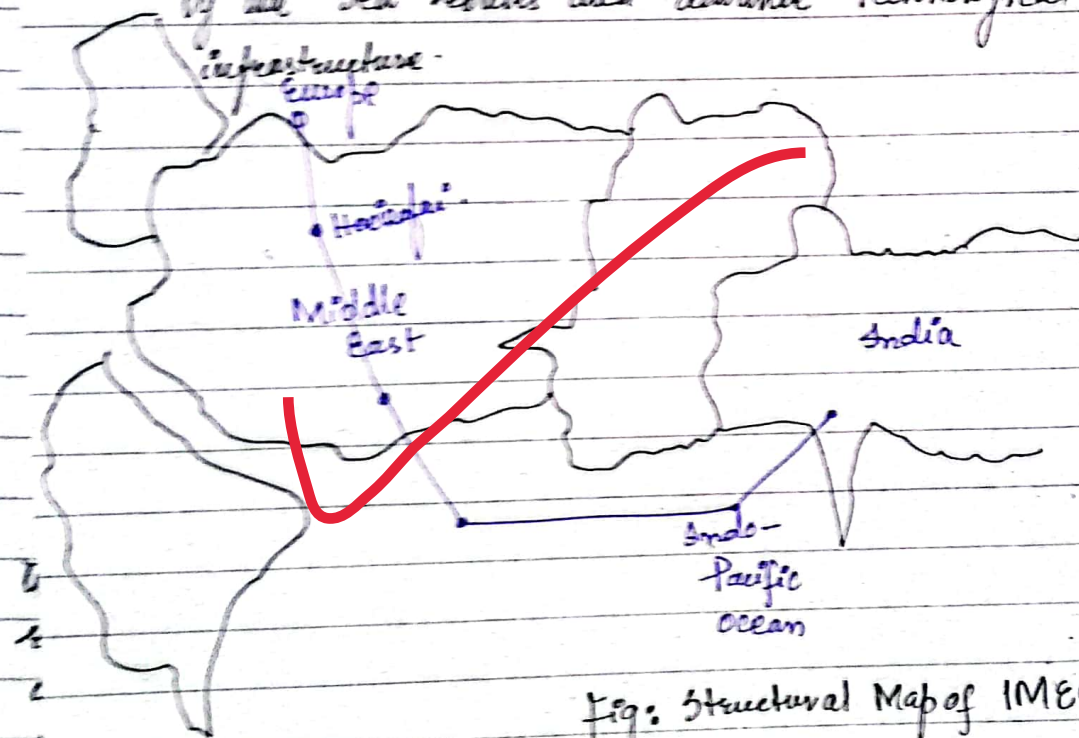 infrastructure.
Europe
Middle
East
India
Indo-
Pacific
Ocean
Fig: Structural Map of IME